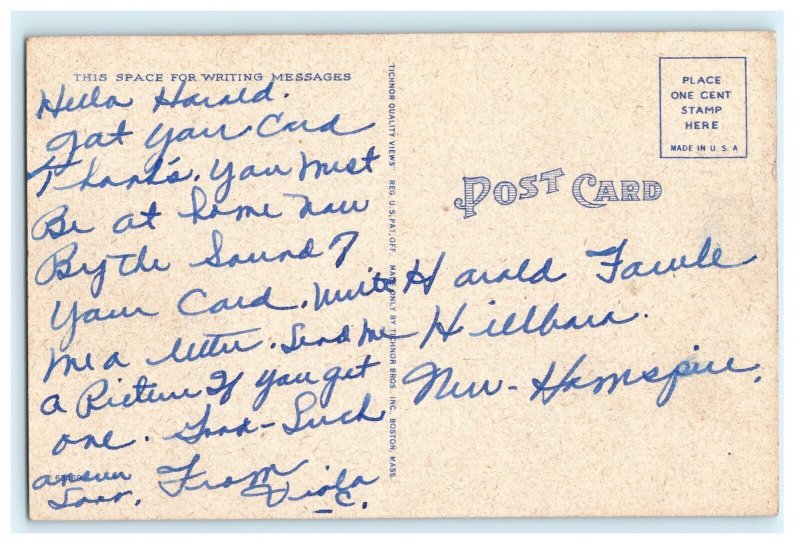 THIS SPACE FOR WRITING MESSAGES
Hello Harald.
got your Card
Thank's. you must
Be at home now
By the Sound of
your Card. write
me a letter. Send me
a Picture If you get
one. Good-Luck
answer
Soon. From
Viola
C.
TICHNOR QUALITY VIEWS REG. U.S. PAT. OFF. MADE ONLY BY TICHNOR BROS. INC., BOSTON, MASS.
PLACE
ONE CENT
STAMP
HERE
MADE IN U.S.A
POST CARD
Harald Fowle
Hillboro.
New-Hamspire.